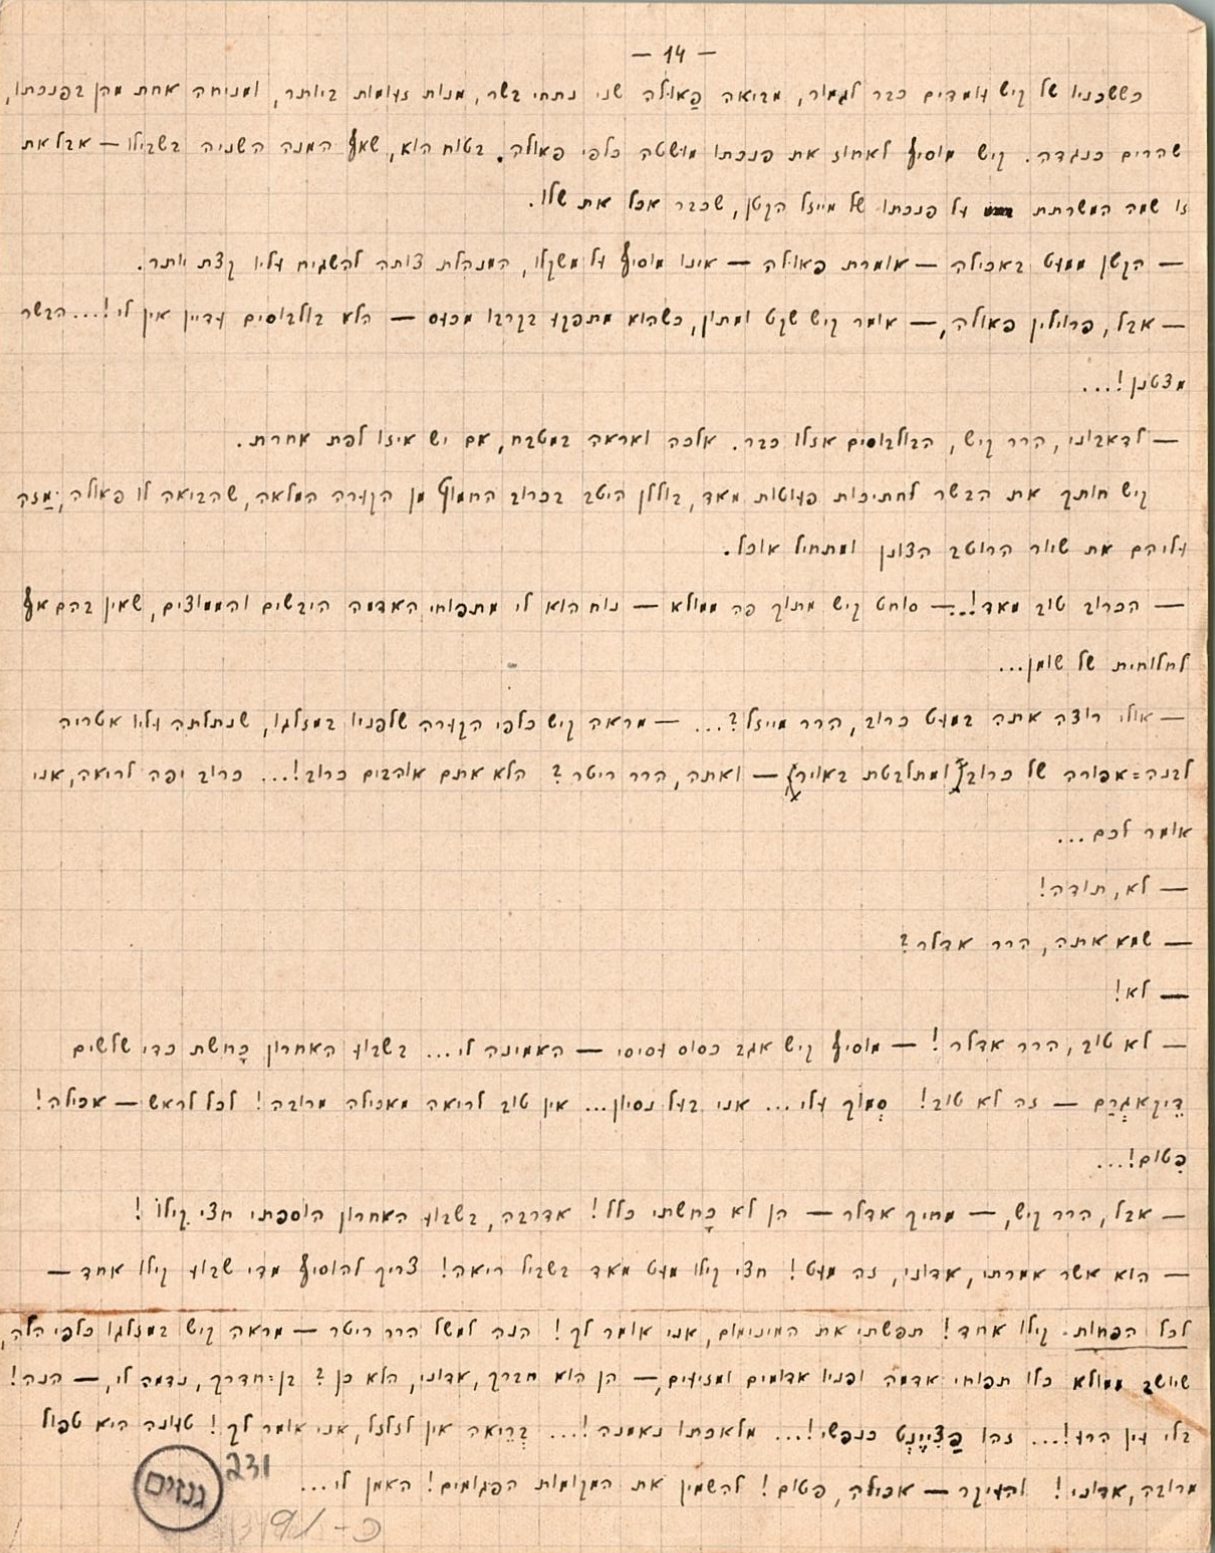 — 14 —
כששכניו של קיש עומדים כבר לגמור, מביאה פַּאולה שני נתחי בשר, מנות זעומות ביותר, ומניחה אחת מהן בפנכתו,
שהרים כנגדה. קיש מוסיף לאחוז את פנכתו מושטה כלפי פאולה. בטוח הוא, שאף המנה השניה בשבילו — אבל את
זו שמה המשרתת על פנכתו של מייזל הקטן, שכבר אכל את שלו.
— הקטן ממעט באכילה — אומרת פאולה — אינו מוסיף על משקלו, המנהלת צותה להשגיח עליו קצת יותר.
— אבל, פרוילין פאולה, — אומר קיש שקט ומתון, כשהוא מתפקע בקרבו מכעס — הלא בולבוסים עדיין אין לי!... הבשר
מצטנן!...
— לדאבוני, הרר קיש, הבולבוסים אזלו כבר. אלכה ואראה במטבח, אם יש איזו לפת אחרת.
קיש חותך את הבשר לחתיכות פעוטות מאד, בוללן היטב בכרוב החמוץ מן הקערה המלאה, שהביאה לו פאולה, מַזה
עליהם את שיור הרוטב הצונן ומתחיל אוכל.
— הכרוב טוב מאד!... — סוחט קיש מתוך פה ממולא — נוח הוא לי מתפוחי האדמה היבשים והממוצים, שאין בהם אף
לחלוחית של שומן...
— אולי רוצה אתה במעט כרוב, הרר מייזל?... — מראה קיש כלפי הקערה שלפניו במזלגו, שנתלתה עליו אטריה
לבנה=אפורה של כרוב ומתלבטת באויר — ואתה, הרר ריטר? הלא אתם אוהבים כרוב!... כרוב יפה לריאה, אני
אומר לכם...
— לא, תודה!
— שמא אתה, הרר אדלר?
— לא!
— לא טוב, הרר אדלר! — מוסיף קיש אגב כסוס עסיסי — האמינה לי... בשבוע האחרון כָּחשת כדי שלשים
דֵיקאגְרַם — זה לא טוב! סְמוֹך עלי... אני בעל נסיון... אין טוב לריאה מאכילה מרובה! לכל לראש — אכילה!
פִּטום!...
— אבל, הרר קיש, — מחיך אדלר — הן לא כָּחשתי כלל! אדרבה, בשבוע האחרון הוספתי חצי קילוֹ!
— הוא אשר אמרתי, אדוני, זה מעט! חצי קילו מעט מאד בשביל ריאה! צריך להוסיף מדי שבוע קילו אחד —
לכל הפחות. קילו אחד! תפשתי את המינימום, אני אומר לך! הנה למשל הרר ריטר — מראה קיש במזלגו כלפי הלה,
שיושב ממולא כלו תפוחי אדמה ופניו אדומים ומזיעים, — הן הוא חברך, אדוני, הלא כן? בן=חדרך, נדמה לי, — הנה!
בלי עין הרע!... זהו פַּצְיֶינְט כנפשי!... מלאכתו נאמנה!... בְּרֵיאה אין לזלזל, אני אומר לך! טעונה היא טפול
מרובה, אדוני! והעיקר — אכילה, פטום! להשמין את המקומות הפגומים! האמן לי...
231
גנזים